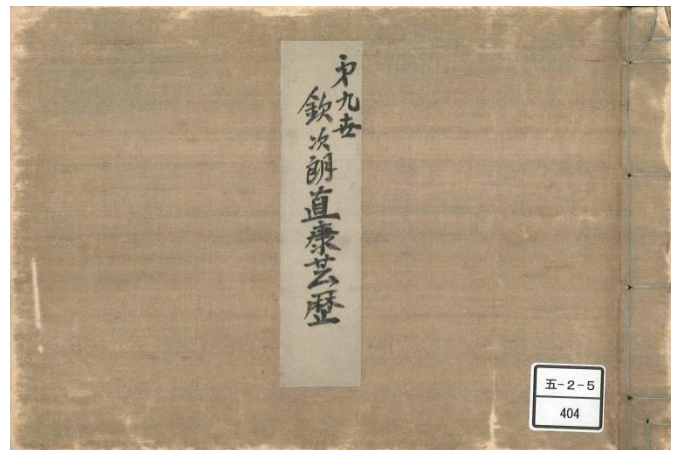 第九世
欽次朗直康芸歴
五-2-5
404